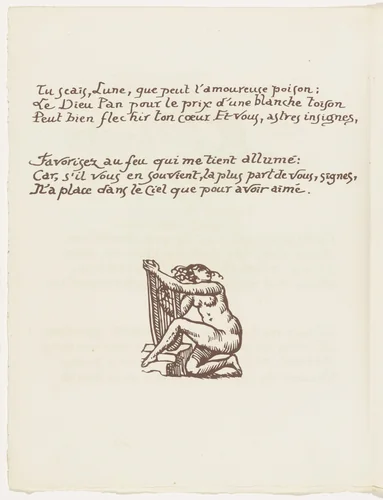 Tu scais, Lune, que peut l'amoureuse poison:
Le Dieu Pan pour le prix d'une blanche toison
Peut bien flechir ton cœur Et vous, astres insignes,
Favorisez au feu qui me tient allumé:
Car, s'il vous en souvient, la plus part de vous, signes,
N'a place dans le Ciel que pour avoir aimé.